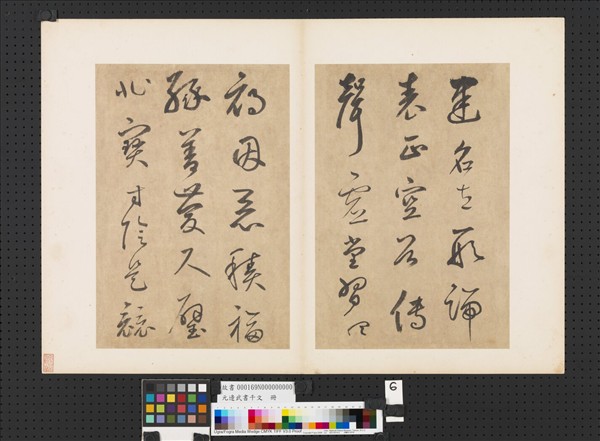 建名立形端
表正空谷傳
聲虛堂習聽
禍因惡積福
緣善慶尺璧
非寶寸陰是競
故書 000169N000000000
元邊武書千文 冊